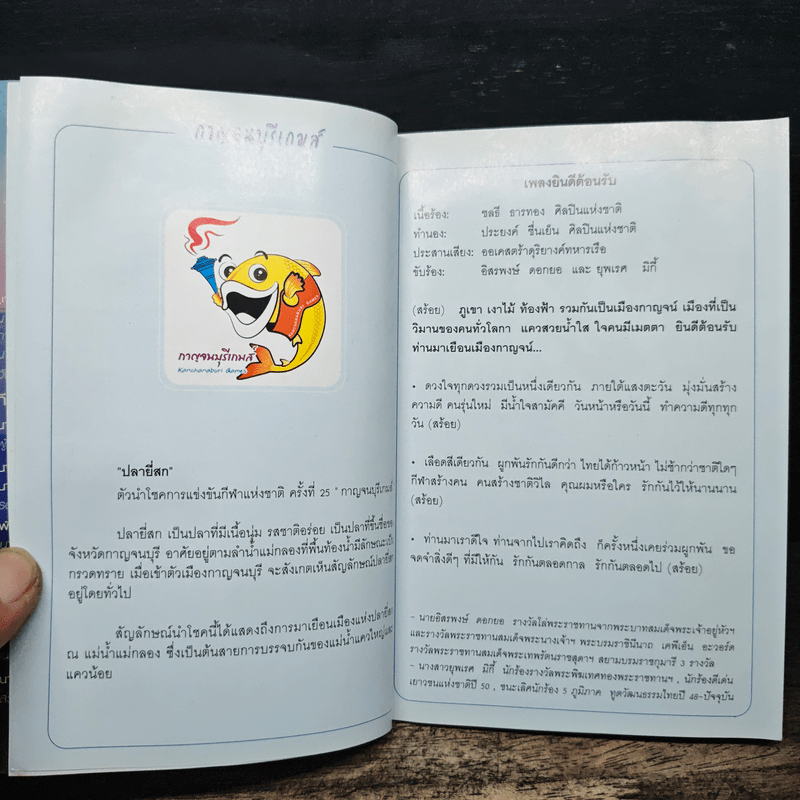 กาญจนบุรีเกมส์
กาญจนบุรีเกมส์
Kanchanaburi Games
"ปลายี่สก"
ตัวนำโชคการแข่งขันกีฬาแห่งชาติ ครั้งที่ 25 " กาญจนบุรีเกมส์
ปลายี่สก เป็นปลาที่มีเนื้อนุ่ม รสชาติอร่อย เป็นปลาที่ขึ้นชื่อของ
จังหวัดกาญจนบุรี อาศัยอยู่ตามลำน้ำแม่กลองที่พื้นท้องน้ำมีลักษณะเป็น
กรวดทราย เมื่อเข้าตัวเมืองกาญจนบุรี จะสังเกตเห็นสัญลักษณ์ปลายี่สก
อยู่โดยทั่วไป
สัญลักษณ์นำโชคนี้ได้แสดงถึงการมาเยือนเมืองแห่งปลายี่สก
ณ แม่น้ำแม่กลอง ซึ่งเป็นต้นสายการบรรจบกันของแม่น้ำแควใหญ่และ
แควน้อย
เพลงยินดีต้อนรับ
เนื้อร้อง: ชลธี ธารทอง ศิลปินแห่งชาติ
ทำนอง: ประยงค์ ชื่นเย็น ศิลปินแห่งชาติ
ประสานเสียง: ออเคสตร้าดุริยางค์ทหารเรือ
ขับร้อง: อิสรพงษ์ ดอกยอ และ ยุพเรศ มิกี้
(สร้อย) ภูเขา เงาไม้ ท้องฟ้า รวมกันเป็นเมืองกาญจน์ เมืองที่เป็น
วิมานของคนทั่วโลกา แควสวยน้ำใส ใจคนมีเมตตา ยินดีต้อนรับ
ท่านมาเยือนเมืองกาญจน์...
• ดวงใจทุกดวงรวมเป็นหนึ่งเดียวกัน ภายใต้แสงตะวัน มุ่งมั่นสร้าง
ความดี คนรุ่นใหม่ มีน้ำใจสามัคคี วันหน้าหรือวันนี้ ทำความดีทุกทุก
วัน (สร้อย)
• เลือดสีเดียวกัน ผูกพันรักกันดีกว่า ไทยได้ก้าวหน้า ไม่ช้ากว่าชาติใดๆ
กีฬาสร้างคน คนสร้างชาติวิไล คุณผมหรือใคร รักกันไว้ให้นานนาน
(สร้อย)
• ท่านมาเราดีใจ ท่านจากไปเราคิดถึง ก็ครั้งหนึ่งเคยร่วมผูกพัน ขอ
จดจำสิ่งดีๆ ที่มีให้กัน รักกันตลอดกาล รักกันตลอดไป (สร้อย)
- นายอิสรพงษ์ ดอกยอ รางวัลโล่พระราชทานจากพระบาทสมเด็จพระเจ้าอยู่หัวฯ
และรางวัลพระราชทานสมเด็จพระนางเจ้าฯ พระบรมราชินีนาถ เคพีเอ็น อะวอร์ด
รางวัลพระราชทานสมเด็จพระเทพรัตนราชสุดาฯ สยามบรมราชกุมารี 3 รางวัล
- นางสาวยุพเรศ มิกี้ นักร้องรางวัลพระพิฆเนศทองพระราชทานฯ , นักร้องดีเด่น
เยาวชนแห่งชาติปี 50 , ชนะเลิศนักร้อง 5 ภูมิภาค ทูตวัฒนธรรมไทยปี 48-ปัจจุบัน